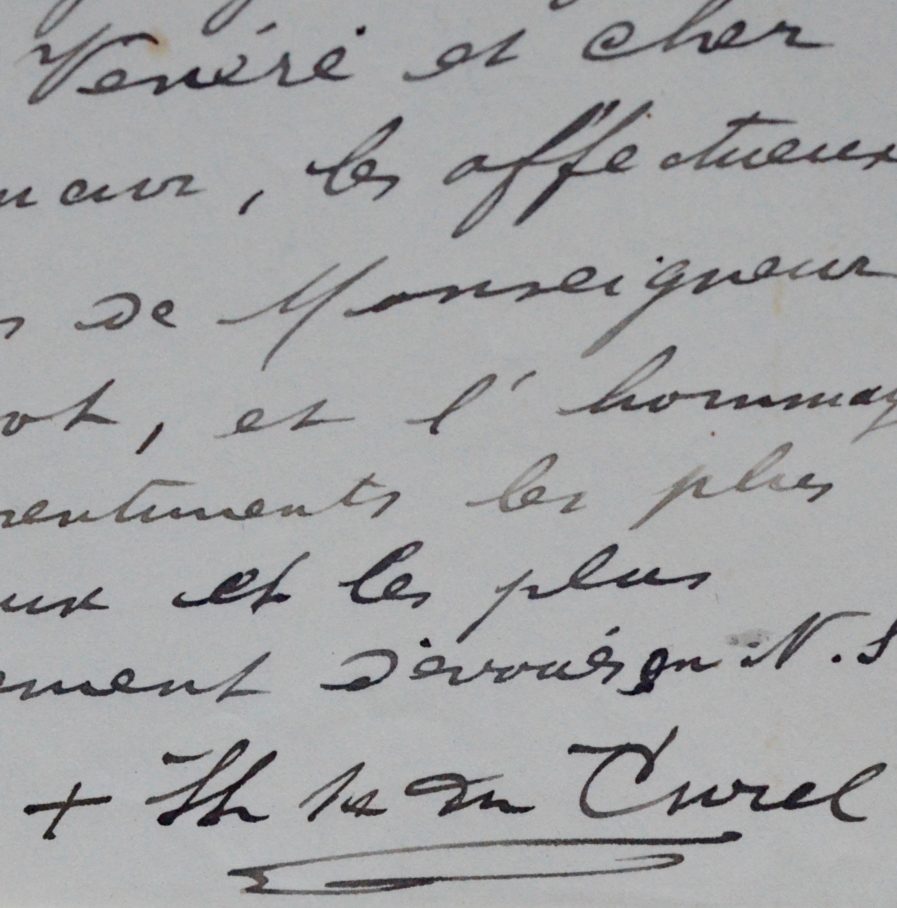 Vénéré et cher
neur, les affectueux
s de Monseigneur
ot, et l'hommag
sentiments les plus
eux et les plus
ement dévoués en N. S
+ Th du Curel